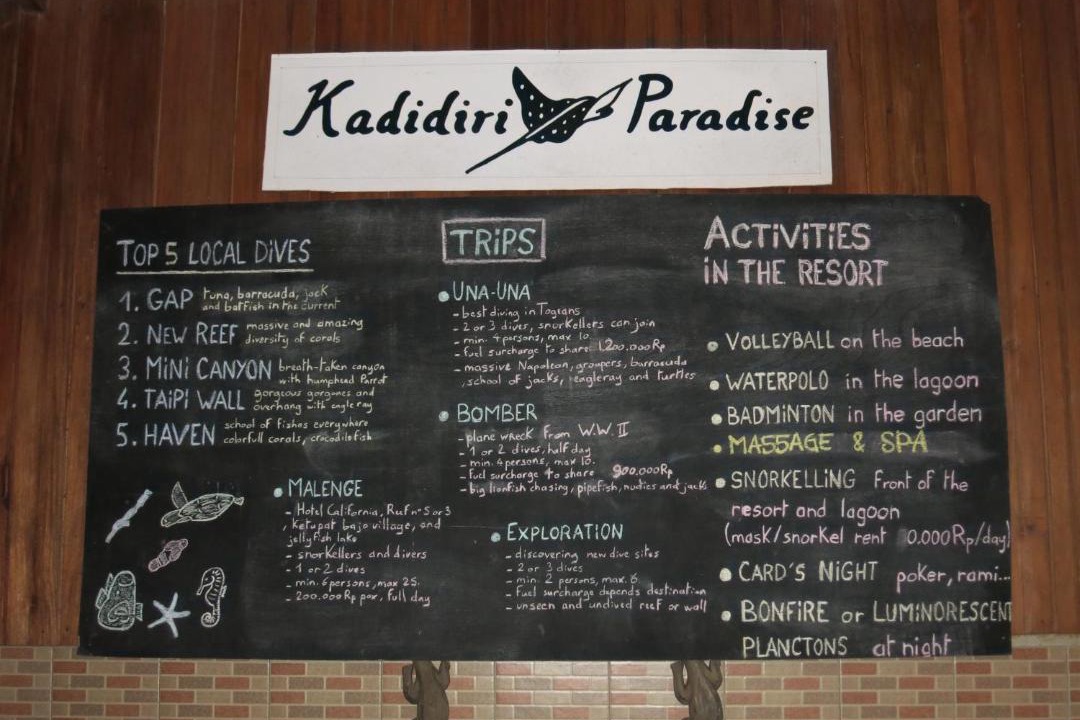 Kadidiri Paradise
TOP 5 LOCAL DIVES
1. GAP tuna, barracuda, jack
and batfish in the current
2. NEW REEF massive and amazing
diversity of corals
3. MINI CANYON breath-taken canyon
with humphead Parrot
4. TAIPI WALL gorgeous gorgones and
overhang with eagle ray
5. HAVEN school of fishes everywhere
colorfull corals, crocodile fish
MALENGE
- Hotel California, Reef n°5 or 3
, ketupat bajo village, and
jellyfish lake
- snorkellers and divers
- 1 or 2 dives
- min. 6 persons, max 25.
- 200.000Rp pax, full day
TRIPS
UNA-UNA
- best diving in Togeans
- 2 or 3 dives, snorkellers can join
- min. 4 persons, max 10.
- fuel surcharge to share 1.200.000Rp
- massive Napoleon, groupers, barracuda
, school of jacks, eagleray and turtles
BOMBER
- plane wreck from W.W. II
- 1 or 2 dives, half day
- min. 4 persons, max 10.
- fuel surcharge to share 900.000Rp
- big lionfish chasing, pipefish, nudies and jacks
EXPLORATION
- discovering new dive sites
- 2 or 3 dives
- min. 2 persons, max. 6
- fuel surcharge depends destination
- unseen and undived reef or wall
ACTIVITIES
IN THE RESORT
VOLLEYBALL on the beach
WATERPOLO in the lagoon
BADMINTON in the garden
MASSAGE & SPA
SNORKELLING front of the
resort and lagoon
(mask/snorkel rent 0.000Rp/day)
CARD'S NIGHT poker, rami...
BONFIRE or LUMINORESCENT
PLANCTONS at night